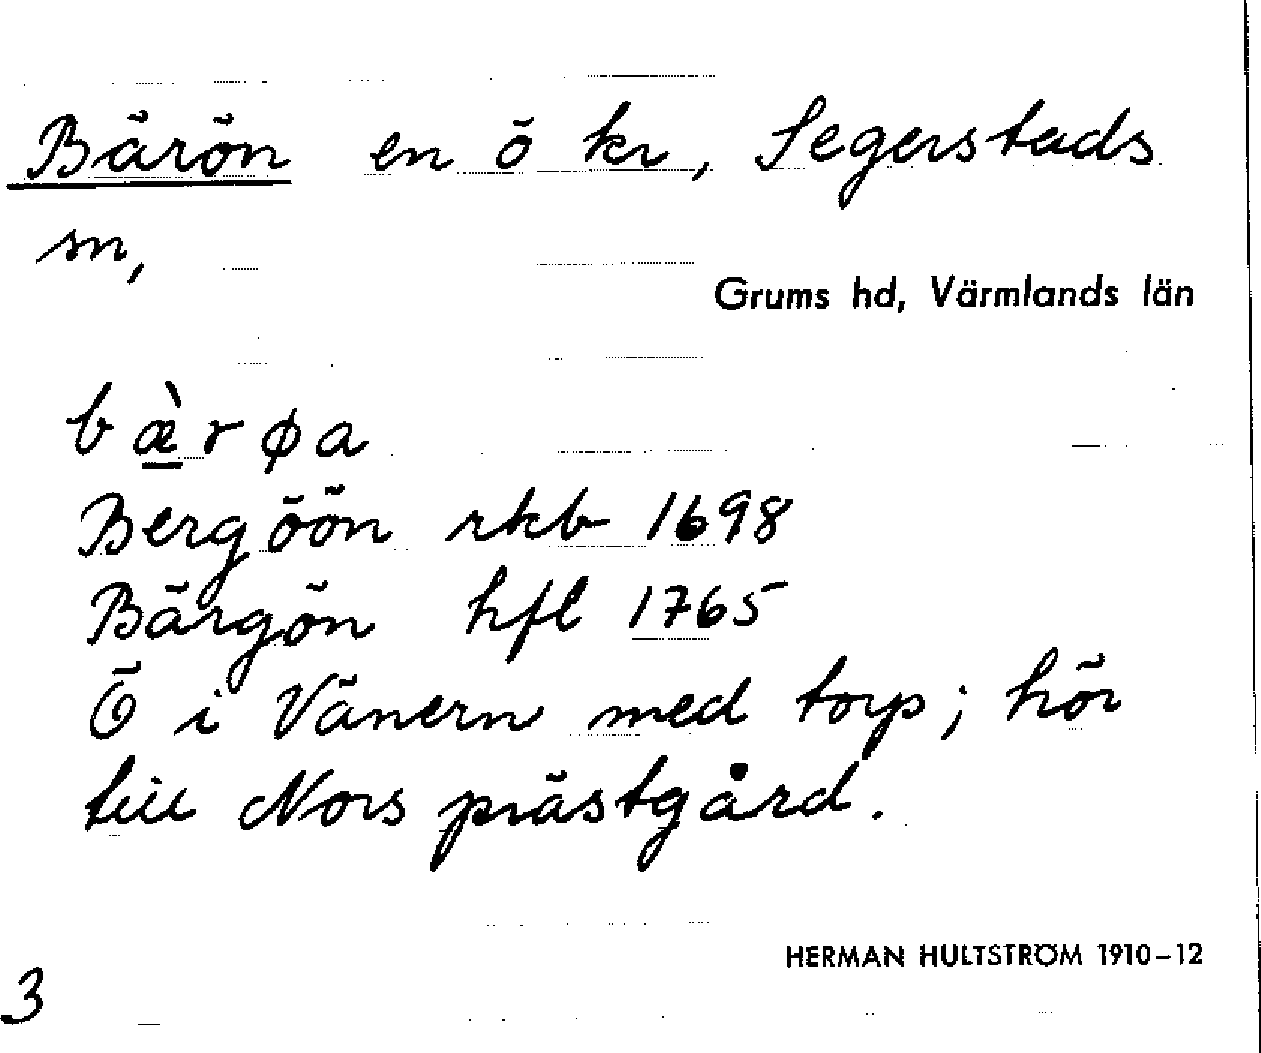 Bärön en ö kr, Segerstads
sn,
Grums hd, Värmlands län
bæ̀røa
Bergöön rkb 1698
Bärgön hfl 1765
Ö i Vänern med torp; hör
till Nors prästgård.
HERMAN HULTSTRÖM 1910–12
3